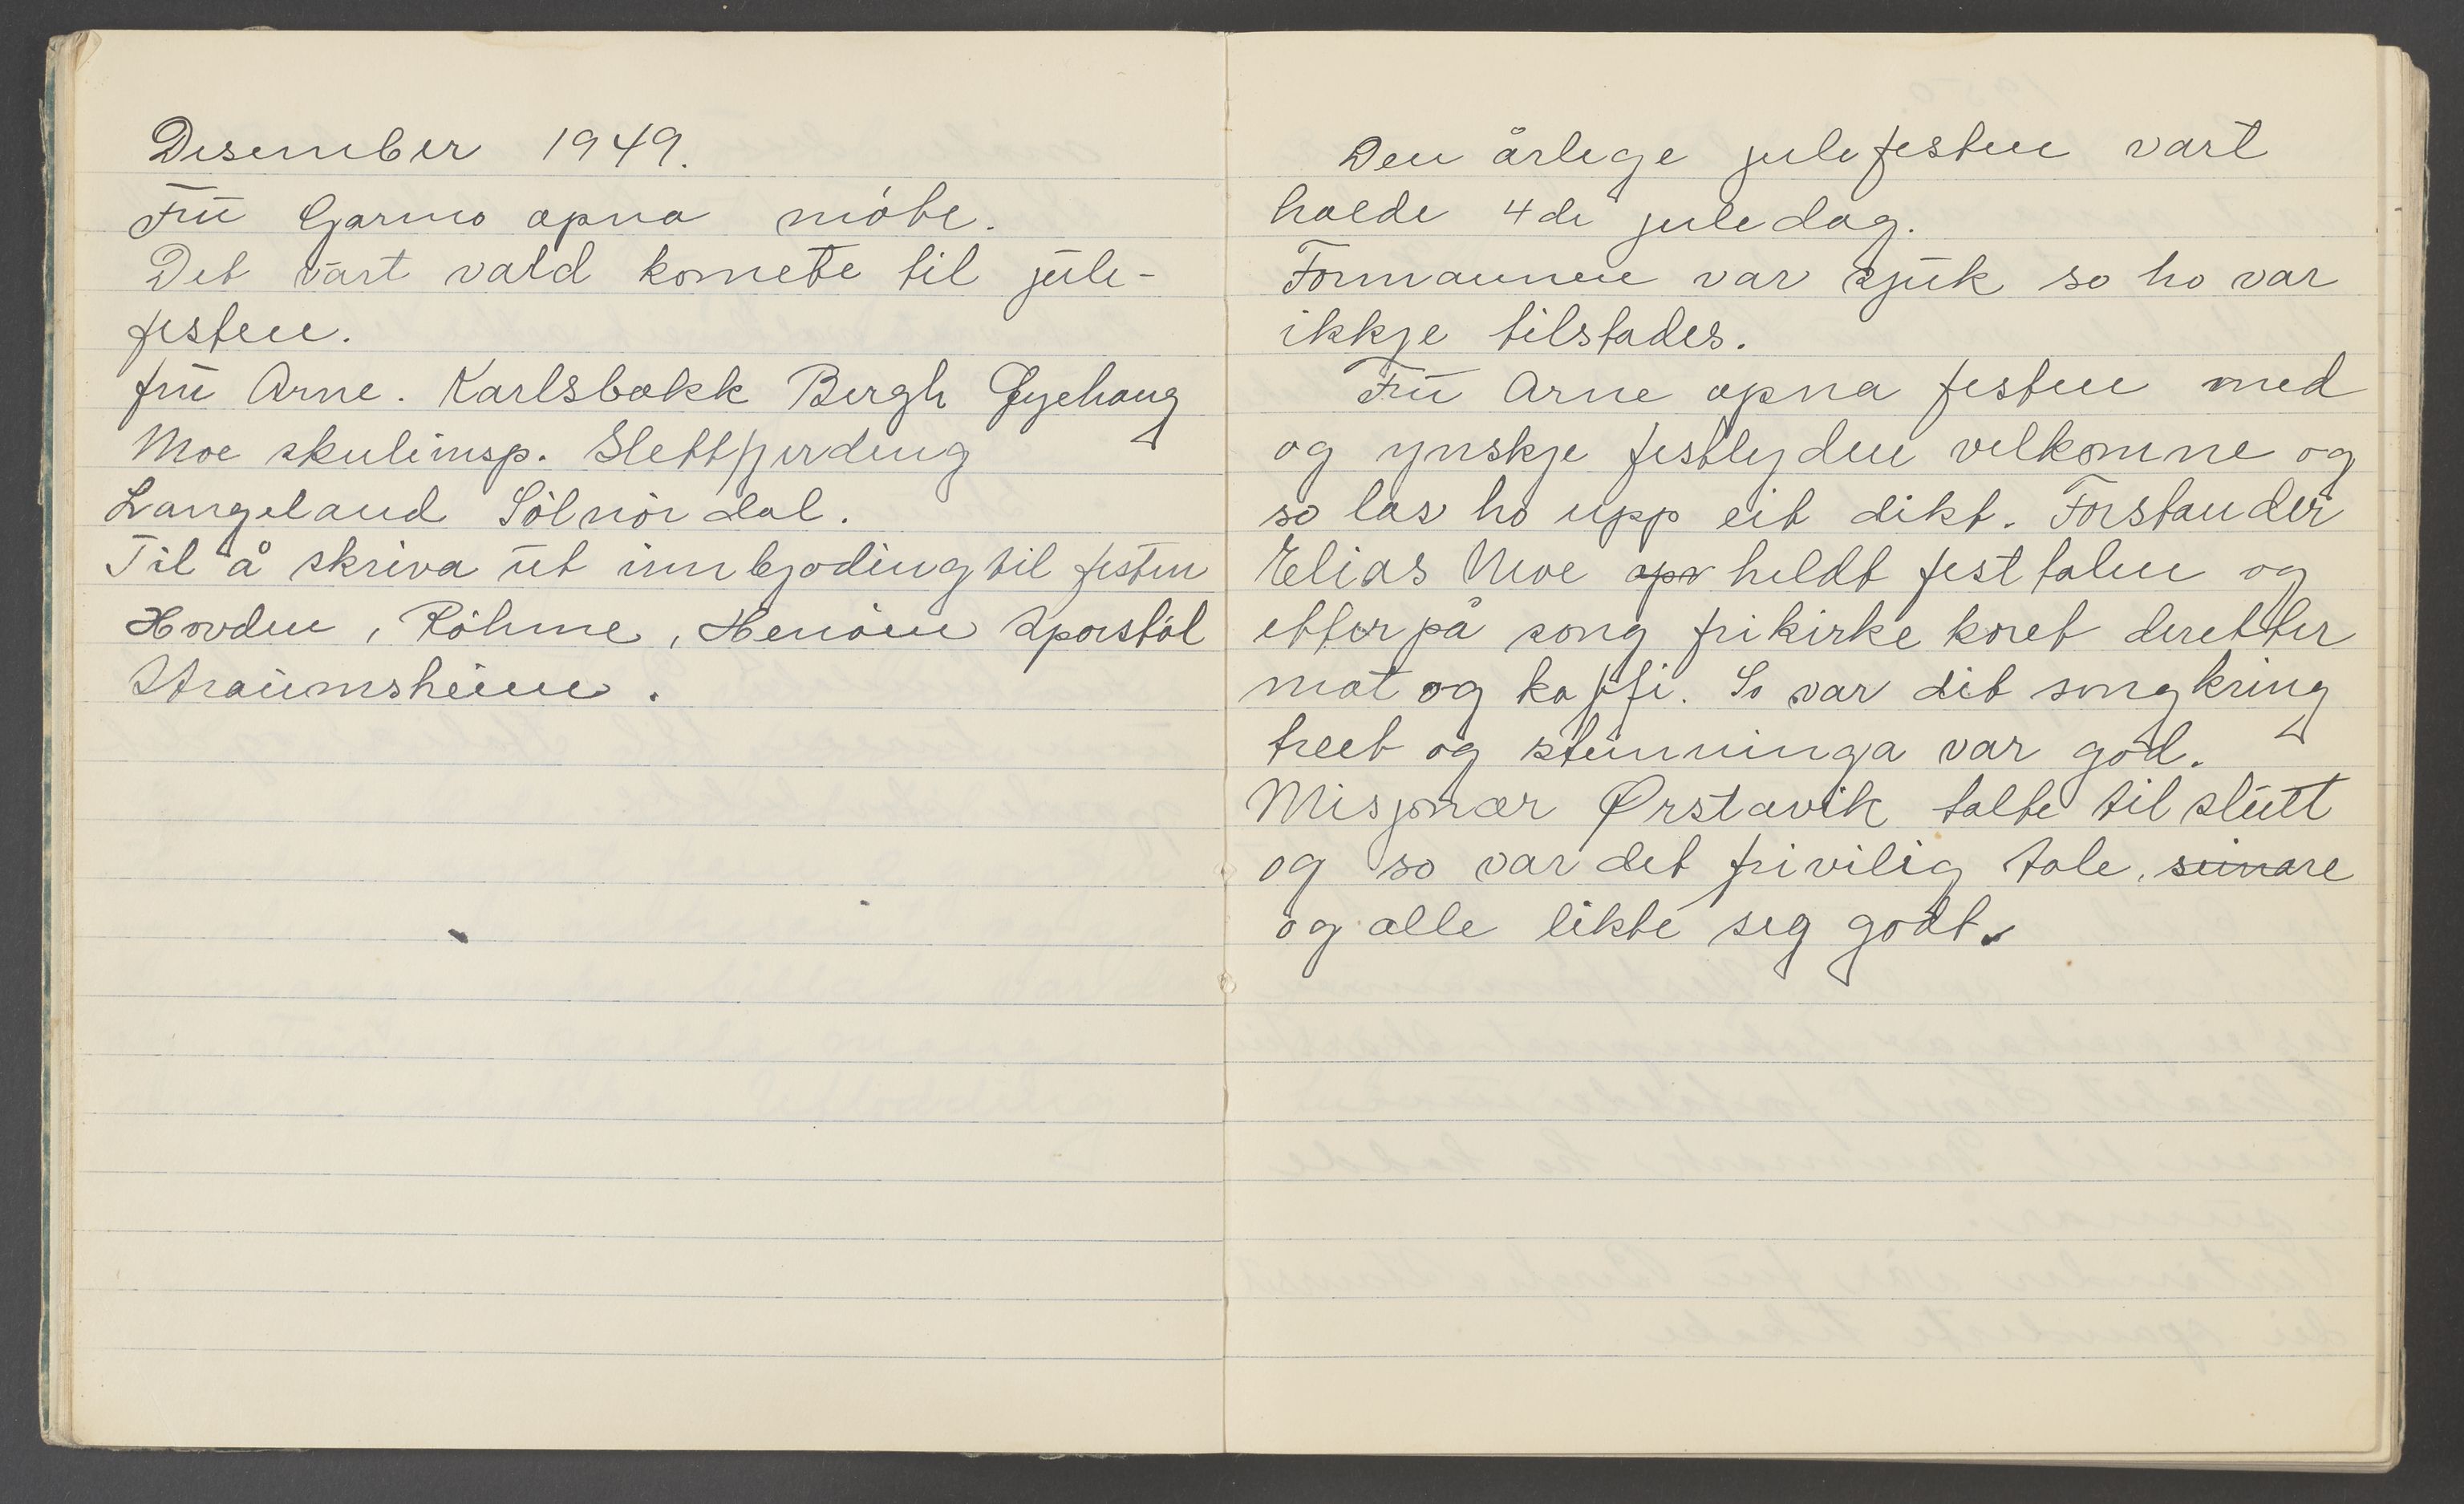 Desember 1949.
Frū Garmo opna móte.
Det vart vald komete til jūle-
festen.
frū Arne. Karlsbakk Bergh Gyehaug
Moe skulinsp. Slettfjerding
Langeland Sólnórdal.
Til å skriva ūt innbjoding til festen
Hovden, Róhme, Henóen Sporstól
Straumsheim.
Den årlege julefesten vart
halde 4de juledag.
Formannen var sjūk so ho var
ikkje tilstades.
Frū Arne opna festen med
og ynskje festlyden velkomne og
so las ho upp eit dikt. Forstander
Elias Moe opn heldt festtalen og
etterpå song frikirkekoret deretter
mat og kaffi. So var dit song kring
treet og stemninga var god.
Misjonær Ørstavik talte til slūtt
og so var det frivilig tale. seinare
og alle likte seg godt.